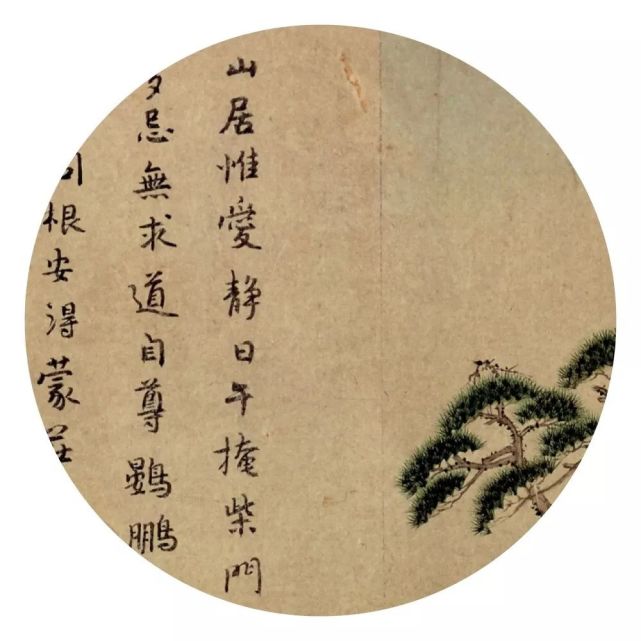 山居惟愛靜日午掩柴門
多忌無求道自尊鷃鵬
同根安得蒙莊